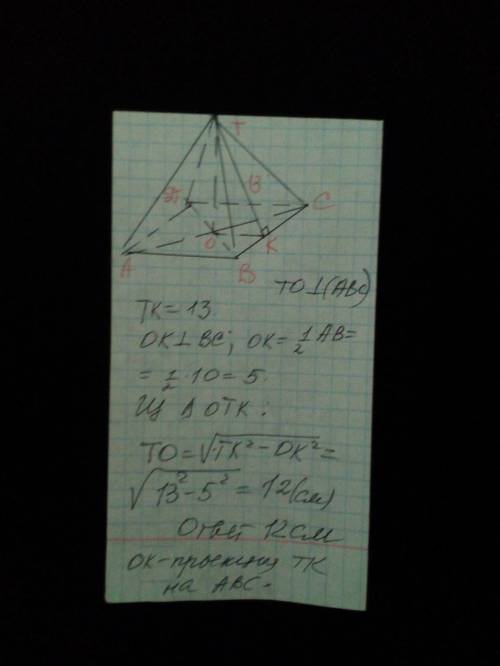 T
13
D
C
O
K
A
B
TO⊥(ABC)
TK = 13
OK⊥BC; OK = 1/2 AB =
= 1/2 · 10 = 5.
Из Δ OTK:
TO = √TK² - OK² =
√13² - 5² = 12(см)
Ответ 12см
OK - проекция TK
на ABC.